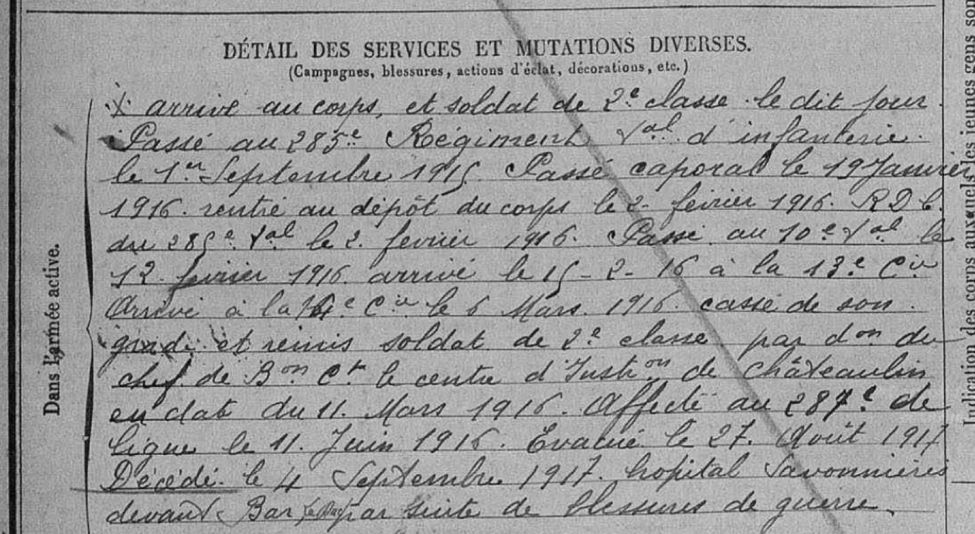 DÉTAIL DES SERVICES ET MUTATIONS DIVERSES.
(Campagnes, blessures, actions d'éclat, décorations, etc.)
arrivé au corps, et soldat de 2e classe le dit jour.
Passé au 285e Régiment d'infanterie
le 1er Septembre 1915. Passé caporal le 19 Janvier
1916. rentré au dépôt du corps le 2 février 1916.
du 285e le 2 février 1916. Passé au 10e le
12 février 1916 arrivé le 15-2-16 à la 13e Cie
Arrivé à la Cie le 6 Mars 1916. cassé de son
grade et remis soldat de 2e classe par don du
chef de Bon Ct le centre d'Inston de Châteaulin
en dat du 11. Mars 1916. Affecté au 287e de
ligne le 11. Juin 1916. Evacué le 27. Août 1917
Décédé le 4 Septembre 1917. hopital Savonnières
devant Bar le Duc par suite de blessures de guerre.
Dans l'armée active.